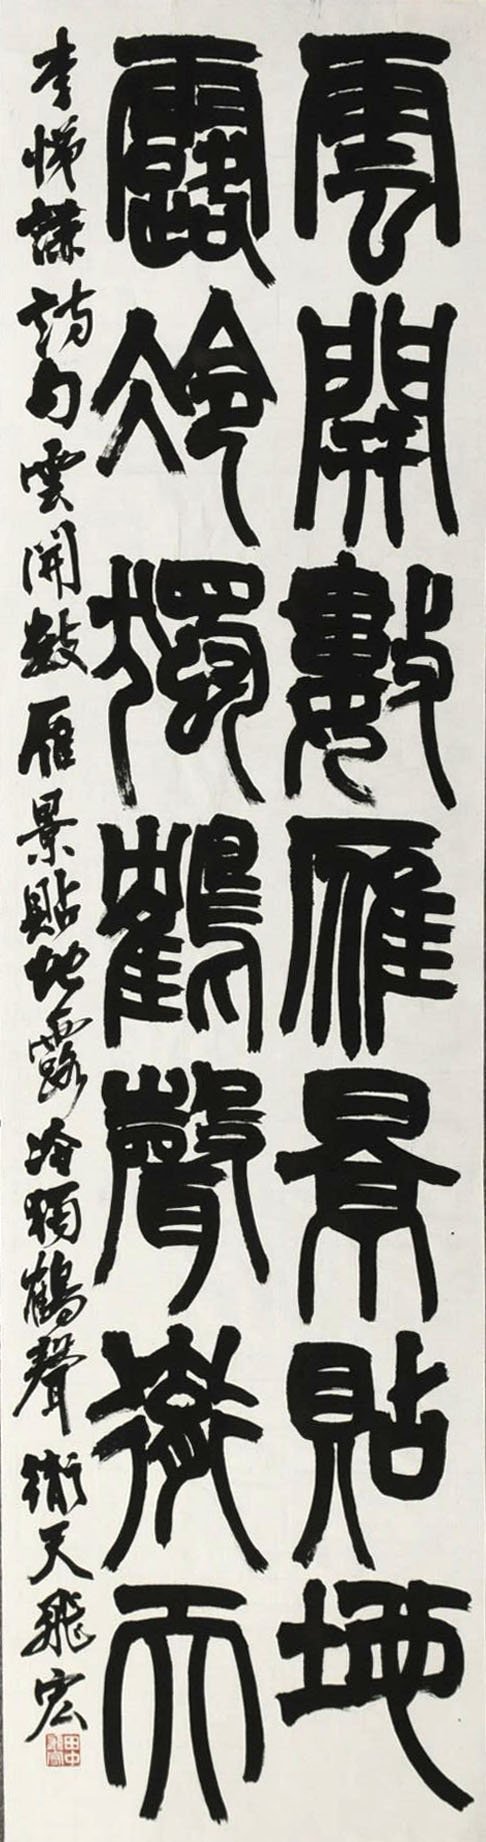 雲開數雁景貼地
露冷獨鶴聲衝天
李悌謙詩句雲開数雁景貼地露冷獨鶴聲衝天飛宏
田中